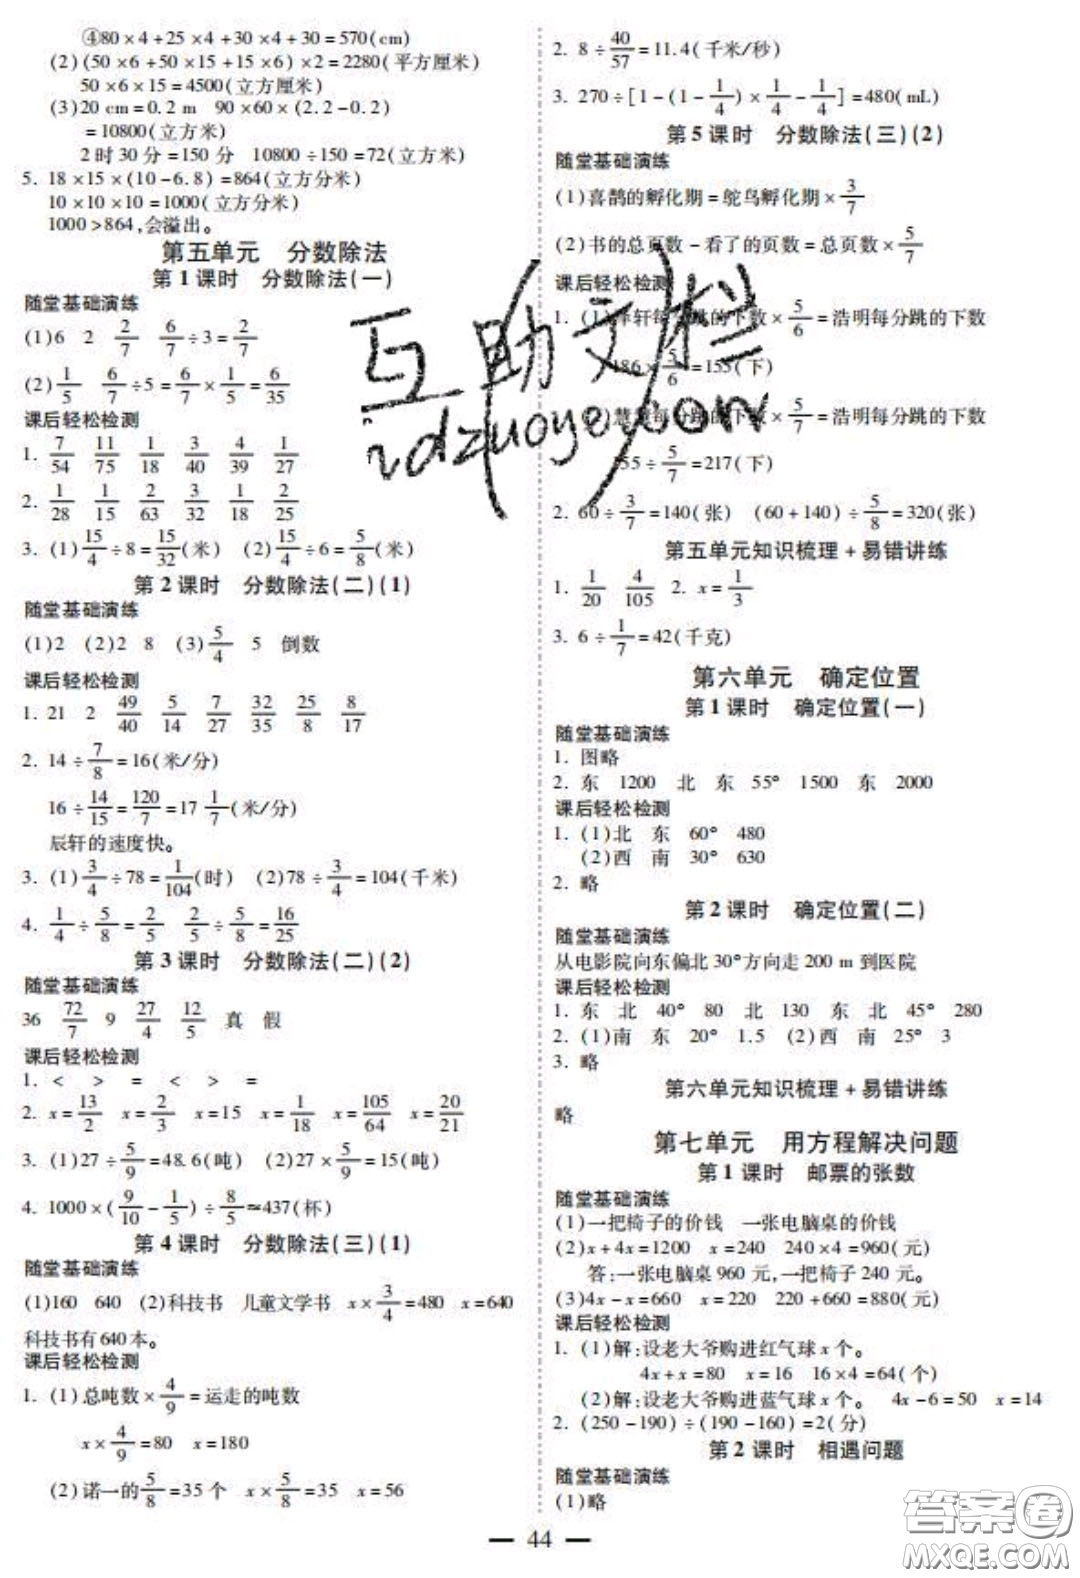 ④80×4+25×4+30×4+30=570(cm)
(2)(50×6+50×15+15×6)×2=2280(平方厘米)
50×6×15=4500(立方厘米)
(3)20 cm=0.2 m 90×60×(2.2-0.2)
=10800(立方米)
2时30分=150分 10800÷150=72(立方米)
5. 18×15×(10-6.8)=864(立方分米)
10×10×10=1000(立方分米)
1000>864,会溢出。
第五单元 分数除法
第1课时 分数除法(一)
随堂基础演练
(1)6 2 2/7 6/7÷3=2/7
(2)1/5 6/7÷5=6/7×1/5=6/35
课后轻松检测
1. 7/54 11/75 1/18 3/40 4/39 1/27
2. 1/28 1/15 2/63 3/32 1/18 2/25
3. (1)15/4÷8=15/32(米) (2)15/4÷6=5/8(米)
第2课时 分数除法(二)(1)
随堂基础演练
(1)2 (2)2 8 (3)5/4 5 倒数
课后轻松检测
1. 21 2 49/40 5/14 7/27 32/35 25/8 8/17
2. 14÷7/8=16(米/分)
16÷14/15=120/7=17 1/7(米/分)
辰轩的速度快。
3. (1)3/4÷78=1/104(时) (2)78÷3/4=104(千米)
4. 1/4÷5/8=2/5 2/5÷5/8=16/25
第3课时 分数除法(二)(2)
随堂基础演练
36 72/7 9 27/4 12/5 真 假
课后轻松检测
1. < > = < > =
2. x=13/2 x=2/3 x=15 x=1/18 x=105/64 x=20/21
3. (1)27÷5/9=48.6(吨) (2)27×5/9=15(吨)
4. 1000×(9/10-1/5)÷8/5≈437(杯)
第4课时 分数除法(三)(1)
随堂基础演练
(1)160 640 (2)科技书 儿童文学书 x×3/4=480 x=640
科技书有640本。
课后轻松检测
1. (1)总吨数×4/9=运走的吨数
x×4/9=80 x=180
(2)诺一的5/8=35个 x×5/8=35 x=56
2. 8÷40/57=11.4(千米/秒)
3. 270÷[1-(1-1/4)×1/4-1/4]=480(mL)
第5课时 分数除法(三)(2)
随堂基础演练
(1)喜鹊的孵化期=鸵鸟孵化期×3/7
(2)书的总页数-看了的页数=总页数×5/7
课后轻松检测
1. (1)轩每分跳的下数×5/6=浩明每分跳的下数
186×5/6=155(下)
每分跳的下数×5/7=浩明每分跳的下数
155÷5/7=217(下)
2. 60÷3/7=140(张) (60+140)÷5/8=320(张)
第五单元知识梳理+易错讲练
1. 1/20 4/105 2. x=1/3
3. 6÷1/7=42(千克)
第六单元 确定位置
第1课时 确定位置(一)
随堂基础演练
1. 图略
2. 东 1200 北 东 55° 1500 东 2000
课后轻松检测
1. (1)北 东 60° 480
(2)西 南 30° 630
2. 略
第2课时 确定位置(二)
随堂基础演练
从电影院向东偏北30°方向走200 m到医院
课后轻松检测
1. 东 北 40° 80 北 130 东 北 45° 280
2. (1)南 东 20° 1.5 (2)西 南 25° 3
3. 略
第六单元知识梳理+易错讲练
略
第七单元 用方程解决问题
第1课时 邮票的张数
随堂基础演练
(1)一把椅子的价钱 一张电脑桌的价钱
(2)x+4x=1200 x=240 240×4=960(元)
答:一张电脑桌960元,一把椅子240元。
(3)4x-x=660 x=220 220+660=880(元)
课后轻松检测
1. (1)解:设老大爷购进红气球x个。
4x+x=80 x=16 16×4=64(个)
(2)解:设老大爷购进蓝气球x个。 4x-6=50 x=14
2. (250-190)÷(190-160)=2(分)
第2课时 相遇问题
随堂基础演练
(1)略
44
互助文栏
答案卷
MXQE.COM